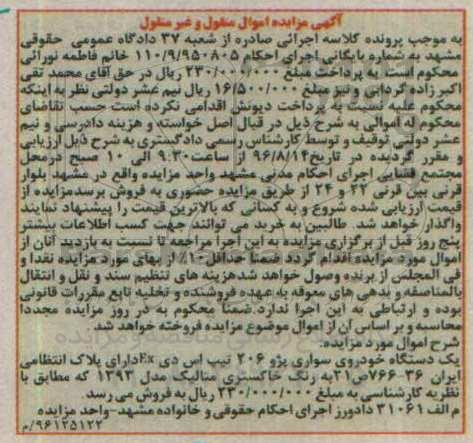 آگهی مزایده اموال منقول و غیر منقول
به موجب پرونده کلاسه اجرائی صادره از شعبه ۳۷ دادگاه عمومی حقوقی
مشهد به شماره بایگانی اجرای احکام ۱۱۰/۹/۹۵۰۸۰۵ خانم فاطمه نورائی
محکوم است به پرداخت مبلغ ۲۳۰/۰۰۰/۰۰۰ ریال در حق آقای محمد تقی
اکبر زاده گردابی و نیز مبلغ ۱۶/۵۰۰/۰۰۰ ریال نیم عشر دولتی نظر به اینکه
محکوم علیه نسبت به پرداخت دیونش اقدامی نکرده است حسب تقاضای
محکوم له اموالی به شرح ذیل در قبال اصل خواسته و هزینه دادرسی و نیم
عشر دولتی توقیف و توسط کارشناس رسمی دادگستری به شرح ذیل ارزیابی
و مقرر گردیده در تاریخ ۹۶/۸/۱۴ از ساعت ۹:۳۰ الی ۱۰ صبح درمحل
مجتمع قضایی اجرای احکام مدنی مشهد واحد مزایده واقع در مشهد بلوار
قرنی بین قرنی ۲۲ و ۲۴ از طریق مزایده حضوری به فروش برسدمزایده از
قیمت ارزیابی شده شروع و به کسانی که بالاترین قیمت را پیشنهاد نمایند
واگذار خواهد شد. طالبین به خرید می توانند جهت کسب اطلاعات بیشتر
پنج روز قبل از برگزاری مزایده به این اجرا مراجعه تا نسبت به بازدید آنان از
اموال مورد مزایده اقدام گردد ضمنا حداقل ۱۰٪ از بهای مورد مزایده نقدا و
فی المجلس از برنده وصول خواهد شدهزینه های تنظیم سند و نقل و انتقال
بالمناصفه و بدهی های معوقه به عهده فروشنده و تخلیه تابع مقررات قانونی
بوده و ارتباطی به این اجرا ندارد.ضمناً محکوم به در روز مزایده مجددا
محاسبه و بر اساس آن از اموال موضوع مزایده فروخته خواهد شد.
شرح اموال مورد مزایده:
یک دستگاه خودروی سواری پژو ۲۰۶ تیپ اس دی Exدارای پلاک انتظامی
ایران ۳۶-۷۶۶ص۲۱به رنگ خاکستری متالیک مدل ۱۳۹۳ که مطابق با
نظریه کارشناسی به مبلغ ۲۳۰/۰۰۰/۰۰۰ ریال به فروش می رسد.
م الف ۳۱۰۶۱ دادورز اجرای احکام حقوقی و خانواده مشهد-واحد مزایده
۹۶۱۲۵۱۲۲/م